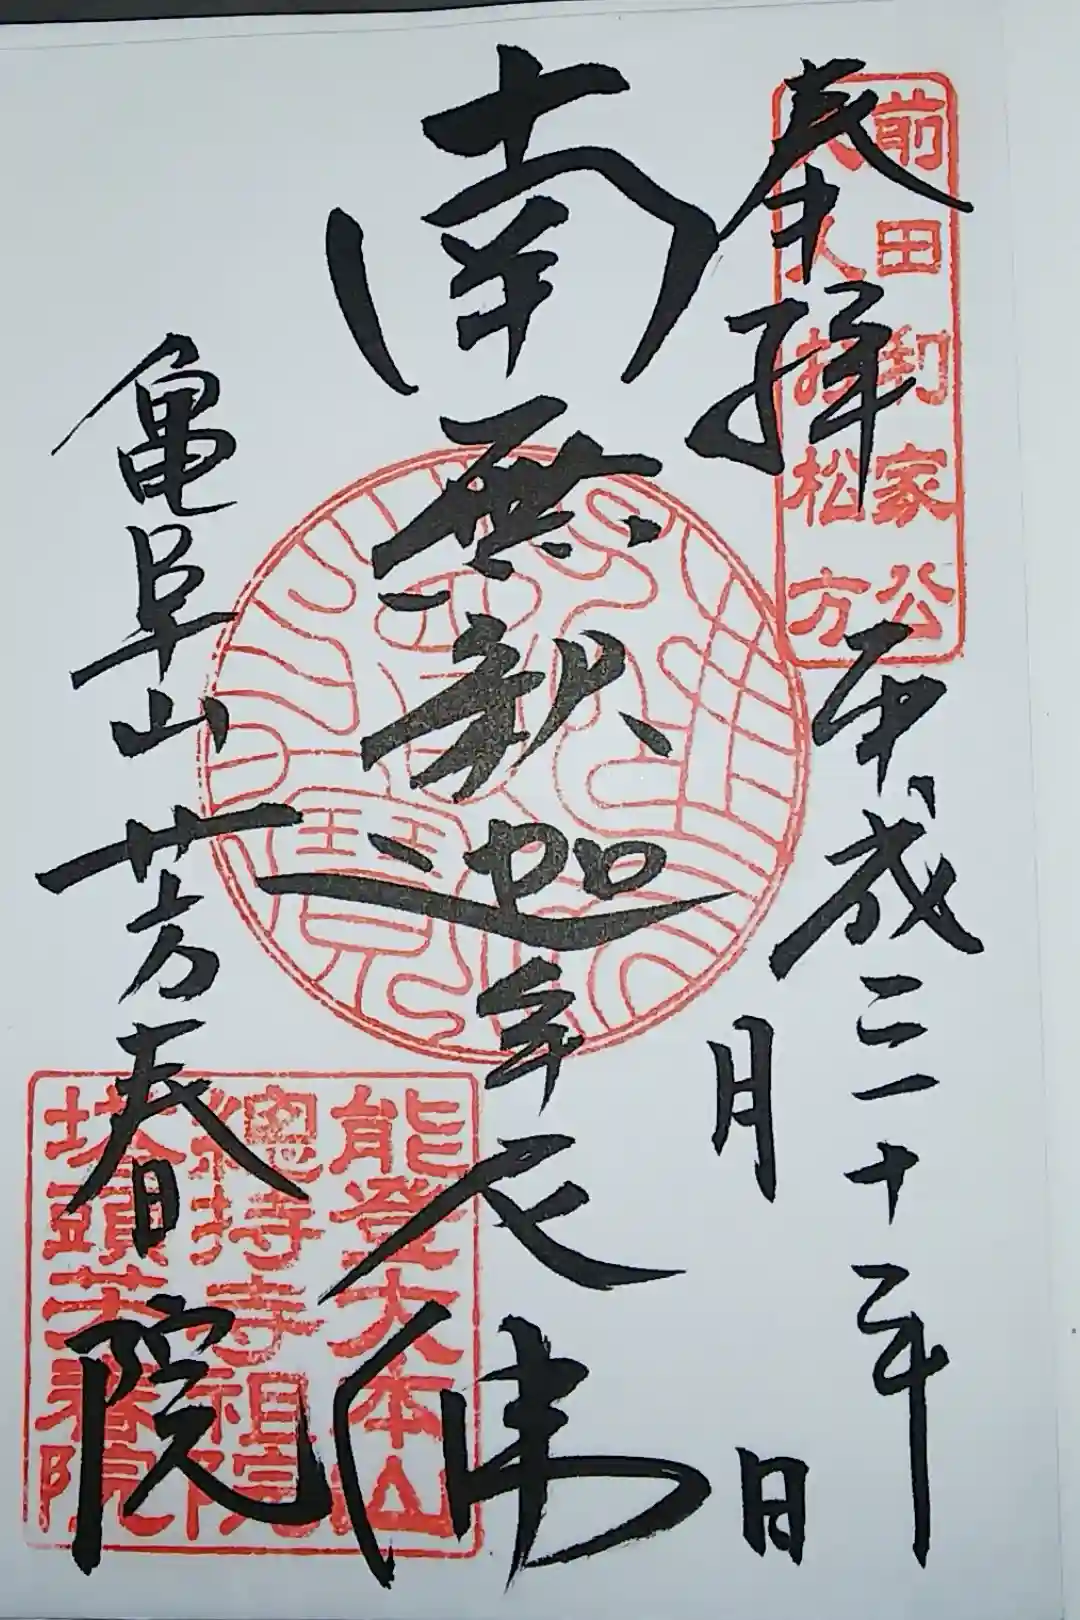 奉拝
前田利家公
夫人お松方
平成三十年
月　日
南無釈迦牟尼佛
亀阜山 芳春院
能登大本山
總持寺祖院
塔頭芳春院